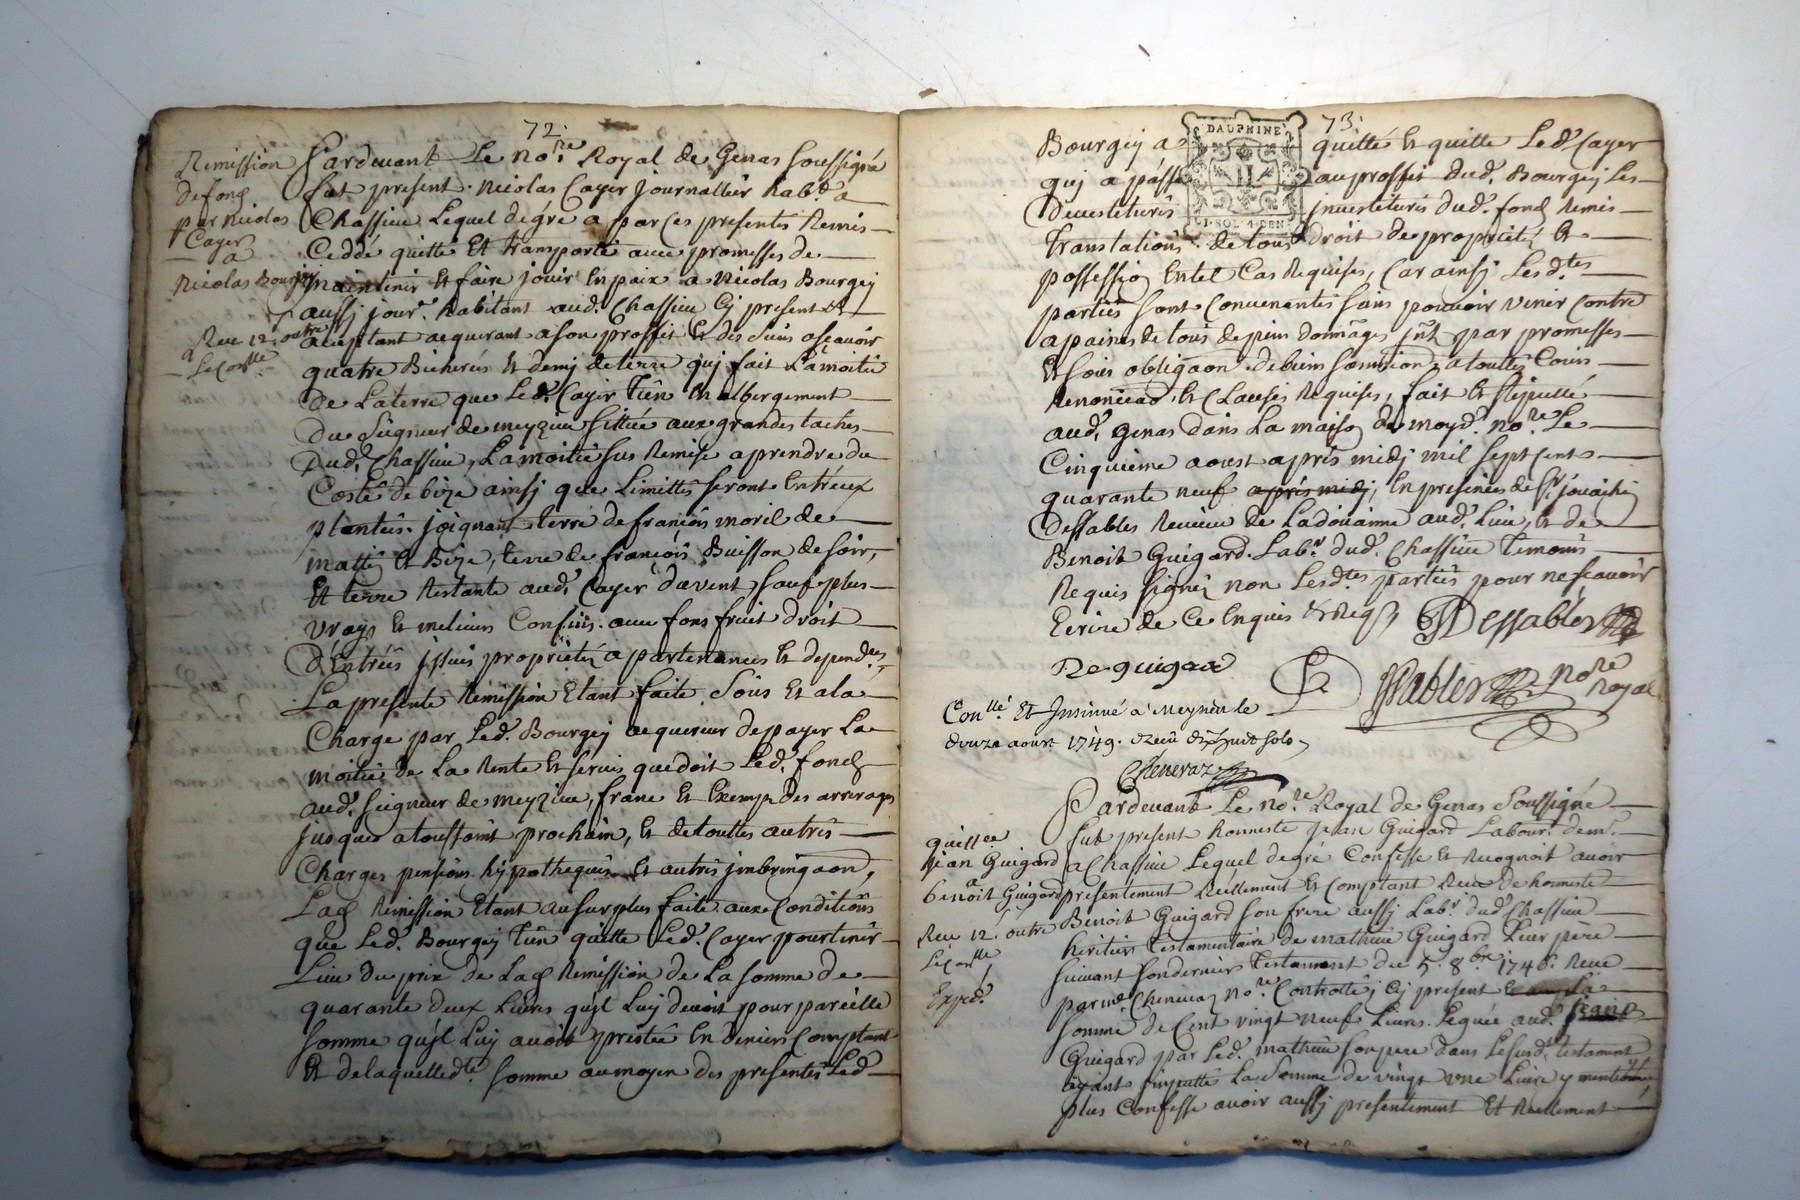 72.
Remission
de fond
par nicolas
Cayer
a
Nicolas Bourgey
Reçu 12. outre
Le Con.lle
Pardevant Le no.re Royal de Genas soussigné
fut present nicolas Cayer journallier hab.t a
Chassieu Lequel de gré a par ces presentes Remis
Ceddé quitté Et transporté avec promesses de
maintenir Et faire jouir En paix a Nicolas Bourgey
aussj jour.r habitant aud.t Chassieu Cy present Et
aceptant acquerant a son proffit Et des siens asçavoir
quatre Bicherés Et demj de terre quj fait La moitié
De La terre que Led.t Cayer Tien En albergement
Du Seigneur de meyzieu sittüée aux grandes taches
Dud.t Chassieu, La moitié sus Remise a prendre du
Costé de bize ainsj que Limittes seront Entreux
plantés. joignant terre de françois moril de
matin Et Bize, terre de françois Buisson de soir,
Et terre Restante aud.t Cayer du vent sauf plus
vrays Et meilieurs Confins. avec fons fruit droit
D'Entrées jssües proprietéz apartenances Et depend.ces
La presente Remission Etant faite Sous Et a la
Charge par Led.t Bourgey acquereur de payer La
moitié de La Rente Et servis que doit Led.t fond
aud.t Seigneur de meyzieu, franc Et Exempt des arrerages
jusques a toussaint prochain, Et de touttes autres
Charges pensions hÿpotheques Et autres jmbringaon,
Lad. Remission Etant au surplus faite aux Conditions
que Led.t Bourgey Tien quitte Led.t Cayer pour tenir
Lieu du prix de Lad. Remission de La somme de
quarante deux Livres qu'jl Luy devoit pour pareille
somme qu'jl Luy avoit prestée En deniers Comptant
Et de laquelle d.te somme au moyen des presentes Led.t
73.
DAUPHINE
1·SOL·4·DEN
Bourgey a quitté Et quitte Led.t Cayer
quj a passé au proffit dud.t Bourgey Les
Devestitures jnvestitures dud.t fond Remis
Translations de tous droit de proprieté Et
possession En tel Cas Requises, Car ainsj Lesd.tes
parties sont Convenentes sans pouvoir venir Contre
a paines de tous depens dommages jn.t par promesses
Et sous obligaon de biens soumission a touttes Cours
Renonciaon Et Clauses Requises, fait Et stipullé
aud.t Genas dans La maison de moyd.t no.re Le
Cinquieme aoust après midj mil sept Cent
quarante neuf après midj, En presences de S.r joachin
Dessables Receveur de La doüanne aud.t Lieu, Et de
Benoit Guigard Lab.r dud.t Chassieu temoins
Requis signés non Lesd.tes parties pour ne sçavoir
Ecrire de Ce Enquis Et Req.s JDessables
B. guigard
Dessables no.re Royal
Con.llé Et Insinué a Meyzieu le
douze aoust 1749. Reçu dix huit sols
Cheneraz
quittce
jean Guigard
a
benoit Guigard
Reçu 12. outre
Le Con.lle
Exped.
Pardevant Le no.re Royal de Genas Soussigné
fut present honneste jean Guigard Labour.r dem.t
a Chassieu Lequel de gré Confesse Et Recognoit avoir
presentement Reellement Et Comptant Receu de honneste
Benoit Guigard son frere aussj Lab.r dud.t Chassieu
heritier testamentaire de mathieu Guigard Leur pere
suivant son dernier testament du 5. 8.bre 1746. Receu
par m.e Cheneraz no.re Controllé, Cy present La
somme de Cent vingt neuf Livres Leguée aud.t jean
Guigard par Led.t mathieu son pere dans Le susd.t testament
ayant jmputté La somme de vingt une Livre y mentionnée
plus Confesse avoir aussj presentement Et Reellement